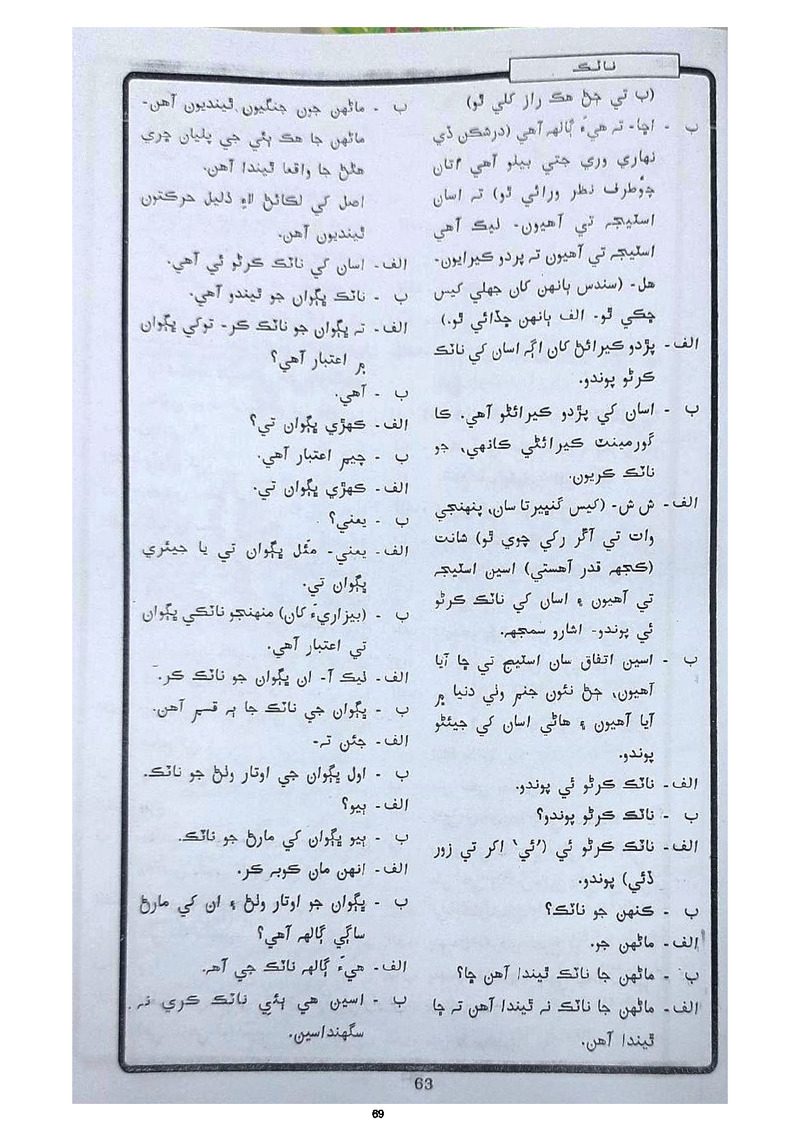 ناٽڪ
(ب تي ڄڻ هڪ راز کلي ٿو)
ب - اڇا- تہ هيءَ ڳالهہ آهي (درشڪن ڏي
نهاري وري جتي بيلو آهي اتان
چؤطرف نظر ورائي ٿو) تہ اسان
اسٽيجہ تي آهيون- ليڪ آهي
اسٽيجہ تي آهيون تہ پردو ڪيرايون-
هل- (سندس ٻانهن کان جهلي کيس
ڇڪي ٿو- الف ٻانهن ڇڏائي ٿو.)
الف- پڙدو ڪيرائڻ کان اڳہ اسان کي ناٽڪ
ڪرڻو پوندو.
ب - اسان کي پڙدو ڪيرائڻو آهي. ڪا
گورمينٽ ڪيرائڻي ڪانهي، جو
ناٽڪ ڪريون.
الف- ش ش- (کيس گنڀيرتا سان، پنهنجي
وات تي آڱر رکي چوي ٿو) شانت
(ڪجهہ قدر آهستي) اسين اسٽيجہ
تي آهيون ۽ اسان کي ناٽڪ ڪرڻو
ئي پوندو- اشارو سمجهہ.
ب - اسين اتفاق سان اسٽيج تي ڇا آيا
آهيون، ڄڻ نئون جنم وٺي دنيا ۾
آيا آهيون ۽ هاڻي اسان کي جيئڻو
پوندو.
الف- ناٽڪ ڪرڻو ئي پوندو.
ب - ناٽڪ ڪرڻو پوندو؟
الف- ناٽڪ ڪرڻو ئي (’ئي‘ اکر تي زور
ڏئي) پوندو.
ب - ڪنهن جو ناٽڪ؟
الف- ماڻهن جو.
ب - ماڻهن جا ناٽڪ ٿيندا آهن ڇا؟
الف- ماڻهن جا ناٽڪ نہ ٿيندا آهن تہ ڇا
ٿيندا آهن.
ب - ماڻهن جون جنگيون ٿينديون آهن-
ماڻهن جا هڪ ٻئي جي پٺيان ڇري
هڻڻ جا واقعا ٿيندا آهن.
اصل کي لڪائڻ لاءِ ذليل حرڪتون
ٿينديون آهن.
الف- اسان کي ناٽڪ ڪرڻو ئي آهي.
ب - ناٽڪ ڀڳوان جو ٿيندو آهي.
الف- تہ ڀڳوان جو ناٽڪ ڪر- توکي ڀڳوان
۾ اعتبار آهي؟
ب - آهي.
الف- ڪهڙي ڀڳوان تي؟
ب - چيم اعتبار آهي.
الف- ڪهڙي ڀڳوان تي.
ب - يعني؟
الف- يعني- مئل ڀڳوان تي يا جيئري
ڀڳوان تي.
ب - (بيزاريءَ کان) منهنجو ناٽڪي ڀڳوان
تي اعتبار آهي.
الف- ليڪ آ- ان ڀڳوان جو ناٽڪ ڪر.
ب - ڀڳوان جي ناٽڪ جا ٻہ قسم آهن.
الف- جئن تہ-
ب - اول ڀڳوان جي اوتار وٺڻ جو ناٽڪ.
الف- ٻيو؟
ب - ٻيو ڀڳوان کي مارڻ جو ناٽڪ.
الف- انهن مان ڪوبہ ڪر.
ب - ڀڳوان جو اوتار وٺڻ ۽ ان کي مارڻ
ساڳي ڳالهہ آهي؟
الف- هيءَ ڳالهہ ناٽڪ جي آهہ.
ب - اسين هي ٻئي ناٽڪ ڪري نہ
سگهنداسين.
63
69